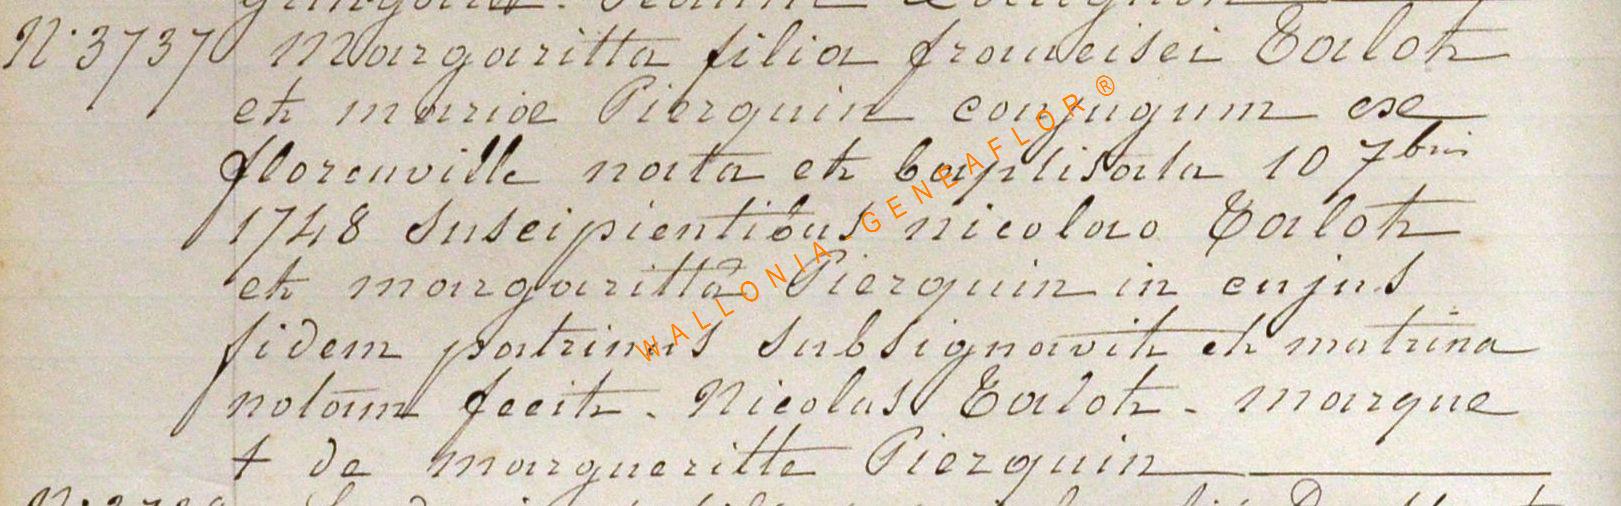 N° 3737 Margaritta filia francisci Talot
et mariæ Pierquin conjugum ex
florenville nata et baptisata 10 7bris
1748 suscipientibus nicolao Talot
et margaritta Pierquin in cujus
fidem patrinus subsignavit et matrina
notam fecit. Nicolas Talot. marque
+ de margueritte Pierquin
WALLONIA-GENEAFLOR®